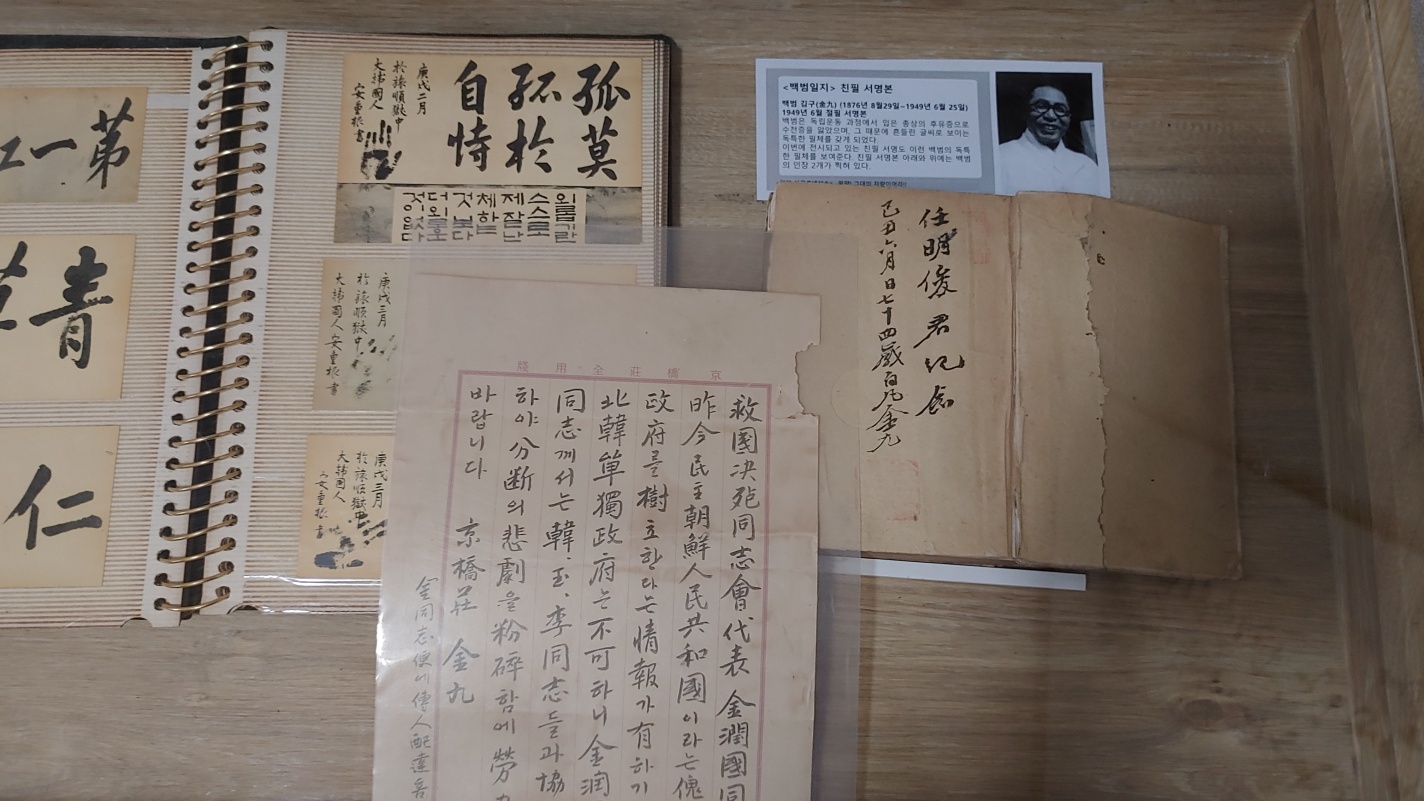 第一江
青草
仁
孤莫
孤於
自恃
庚戌二月
於旅順獄中
大韓國人 安重根書
외롭기란
스스로
제잘난
체하는
것보다
더외로운
것없다
庚戌三月
於旅順獄中
大韓國人安重根書
庚戌三月
於旅順獄中
大韓國人
安重根書
京橋莊全用牋
救國決死同志會代表 金潤國同
昨今民主朝鮮人民共和國이라는傀
政府를樹立한다는情報가有하기
北韓單獨政府는不可하니 金润
同志께서는韓、玉、李同志들과協
하야分断의悲劇을粉碎함에勞力
바랍니다 京橋莊 金九
金同志便以傳人配達
<백범일지> 친필 서명본
백범 김구(金九) (1876년 8월29일~1949년 6월 25일)
1949년 6월 절필 서명본
백범은 독립운동 과정에서 입은 총상의 후유증으로
수전증을 앓았으며, 그 때문에 흔들린 글씨로 보이는
독특한 필체를 갖게 되었다.
이번에 전시되고 있는 친필 서명도 이런 백범의 독특
한 필체를 보여준다. 친필 서명본 아래와 위에는 백범
의 인장 2개가 찍혀 있다.
任明俊君紀念
己丑六月日七十四歲白凡金九